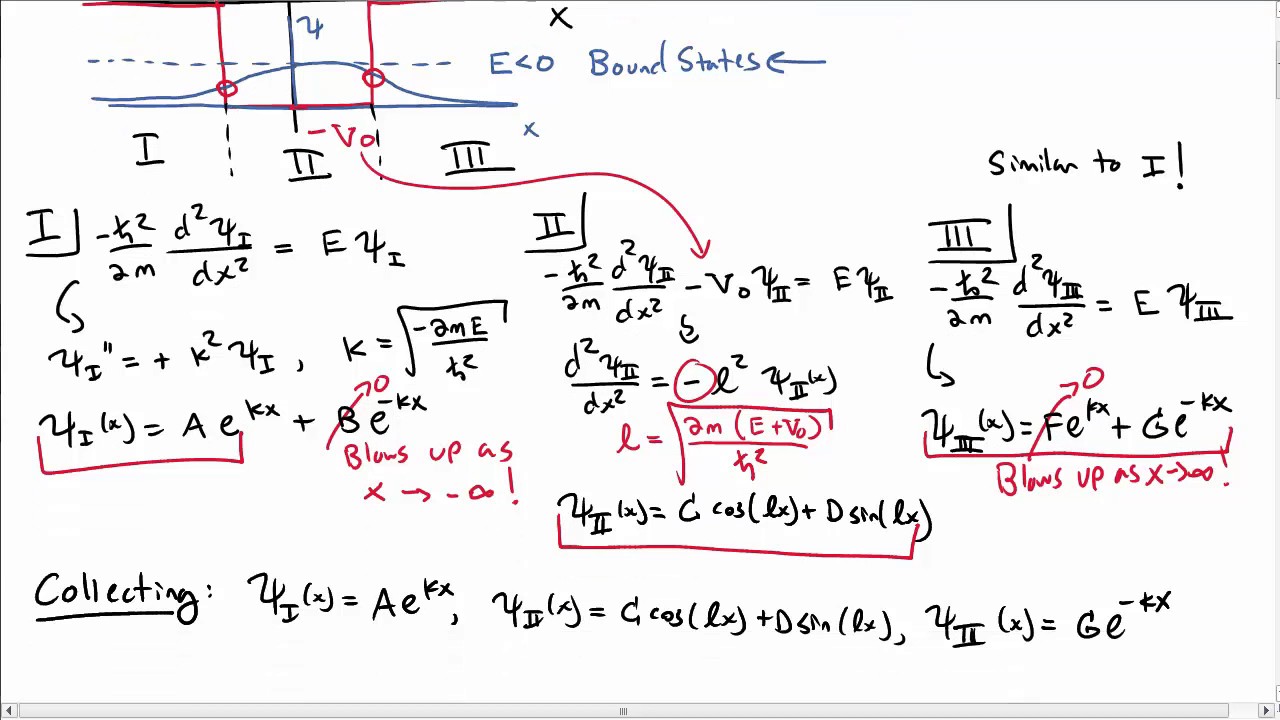 x
ψ
E<0 Bound States ←
x
-V₀
I
II
III
Similar to I!
I
-ħ²/2m d²ψ_I/dx² = E ψ_I
ψ_I'' = + k² ψ_I , k = √(-2mE/ħ²)
ψ_I(x) = A e^{kx} + B e^{-kx}
→ 0
Blows up as
x → -∞!
II
-ħ²/2m d²ψ_II/dx² - V₀ψ_II = E ψ_II
d²ψ_II/dx² = - l² ψ_II(x)
l = √(2m(E+V₀)/ħ²)
ψ_II(x) = C cos(lx) + D sin(lx)
III
-ħ²/2m d²ψ_III/dx² = E ψ_III
→ 0
ψ_III(x) = F e^{kx} + G e^{-kx}
Blows up as x→∞!
Collecting: ψ_I(x) = A e^{kx}, ψ_II(x) = C cos(lx) + D sin(lx), ψ_III(x) = G e^{-kx}